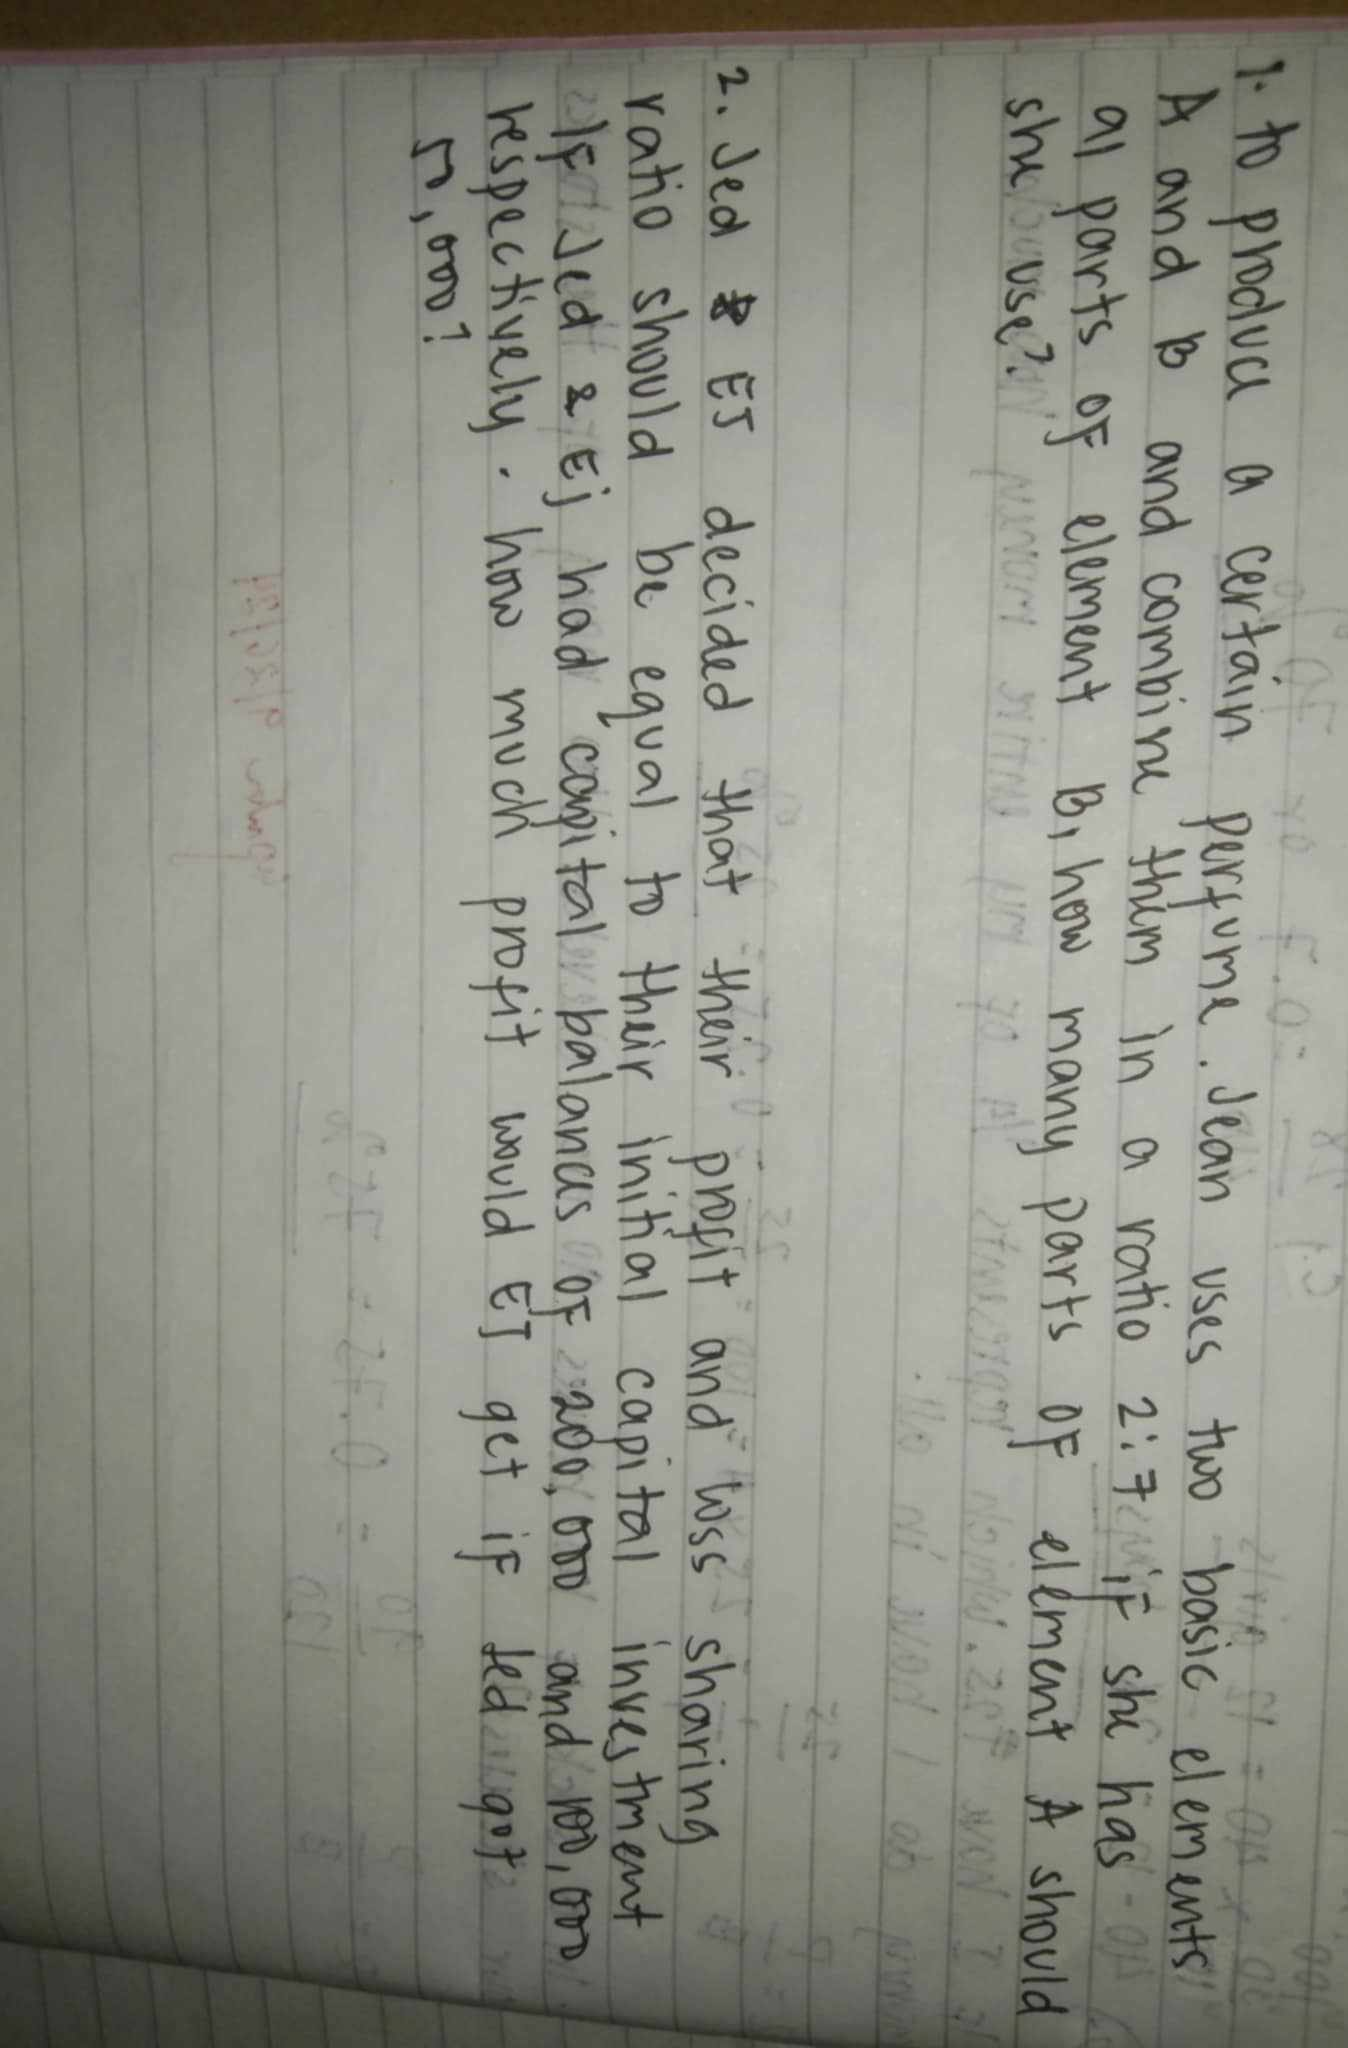 1. to produce a certain perfume. Jean uses two basic elements
A and B and combine them in a ratio 2:7 if she has
91 parts of element B, how many parts of element A should
she use?
2. Jed & EJ decided that their profit and loss sharing
ratio should be equal to their initial capital investment
IF Jed & Ej had capital balances OF 200,000 and 100,000
respectively. how much profit would EJ get if Jed got
50,000?